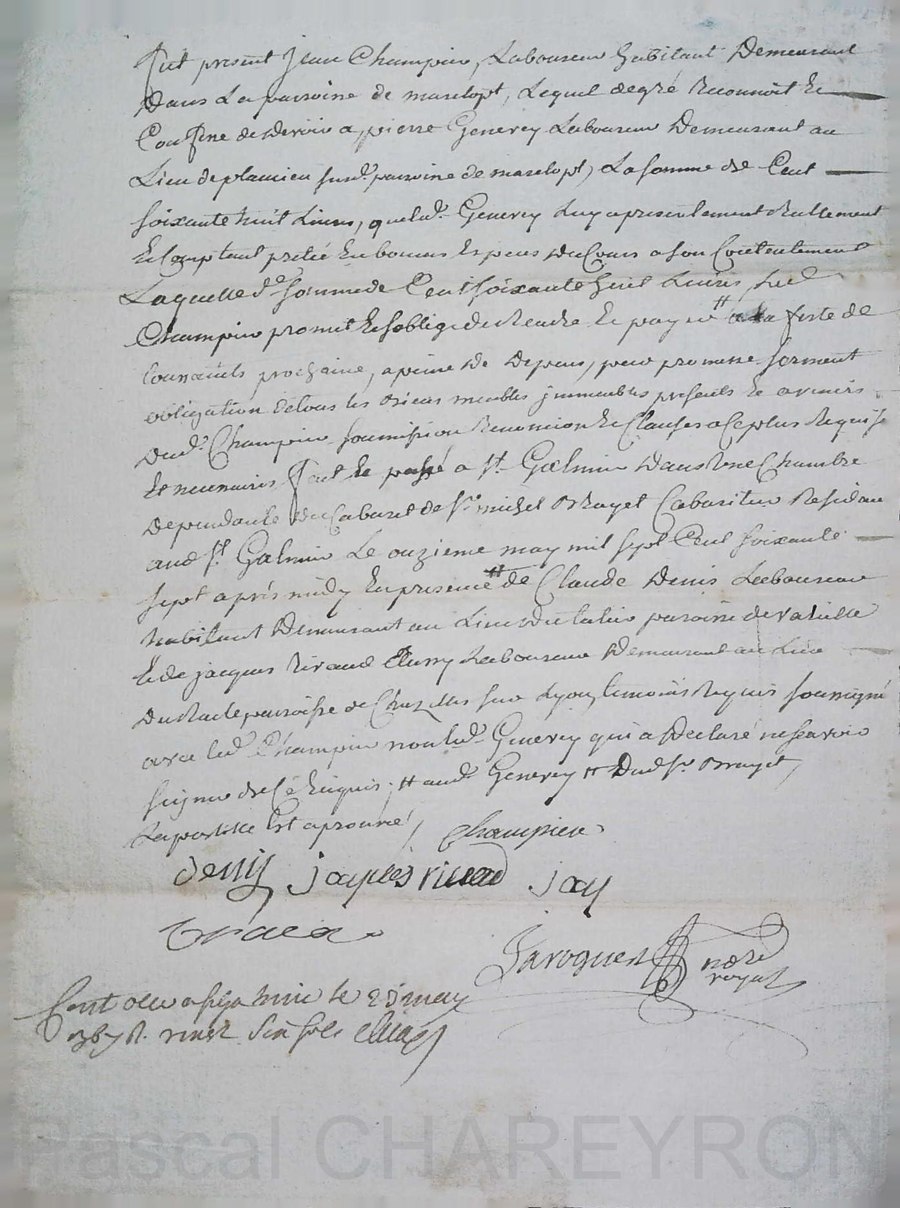 fut present jean Champier, Laboureur habitant Demeurant
Dans La paroisse de marclopt, Lequel de gré Reconnoit Et
Confesse devoir a pierre Generey Laboureur Demeurant au
Lieu de plancieu susd. paroisse de marclopt, La somme de Cent
soixante huit Livres, que led. Generey luy a presentement Reellement
Et Comptant pretée En bonnes Especes du Cours a son Contentement
Laquelle de. somme de Cent soixante huit Livres led.
Champier promet Et s'oblige de Rendre Et payer # a la feste de
toussaints prochaine, a peine de Depens, pour promesse serment
obligation de tous les Biens meubles jmmeubles presents Et avenirs
Dud. Champier soumission Renonciation Et Clauses a Ce plus Requises
Et necessaires fait Et passé a St. Galmier Dans une Chambre
Dependante du Cabaret de Sr. michel Brayet Cabaretier Residant
aud. St. Galmier Le onzieme may mil sept Cent soixante
sept après midy En presence # de Claude Denis Laboureur
habitant Demeurant au Lieu paroisse de valeille
Et de jacques Rivaud Laboureur Demeurant au Lieu
paroisse de Chazelles sur Lyon, temoins Requis soussignés
avec led. Champier non led. Generey qui a Declaré ne sçavoir
signer de Ce Enquis. # aud. Generey # Dud. Sr. Brayet,
La postille Est aprouvée /
Champier
denis jaques rivaud jay
Laroque nore
royal
Cont olle a st galmier le 23 may
1767 R. vingt six sols
Pascal CHAREYRON